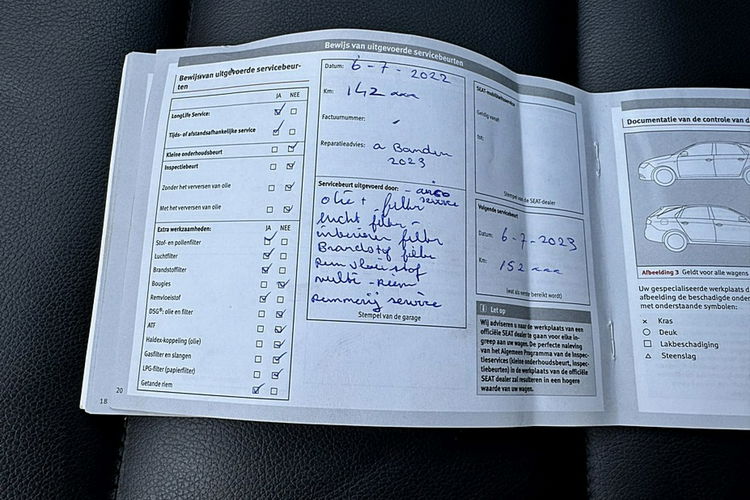 Bewijs van uitgevoerde servicebeurten
Bewijs van uitgevoerde servicebeur-
ten
JA NEE
LongLife Service:
Tijds- of afstandsafhankelijke service
Kleine onderhoudsbeurt
Inspectiebeurt
Zonder het verversen van olie
Met het verversen van olie
Extra werkzaamheden: JA NEE
Stof- en pollenfilter
Luchtfilter
Brandstoffilter
Bougies
Remvloeistof
DSG®: olie en filter
ATF
Haldex-koppeling (olie)
Gasfilter en slangen
LPG-filter (papierfilter)
Getande riem
20
18
Datum: 6-7-2022
Km: 142
Factuurnummer: -
Reparatieadvies: a Banden
2023
Servicebeurt uitgevoerd door: -
service
olie + filter
lucht filter -
interieur filter
Brandstof filter
Rem vloeistof
multi-riem
remmerij service
Stempel van de garage
SEAT-mobiliteitsservice
Geldig vanaf
tot:
Stempel van de SEAT-dealer
Volgende servicebeurt
Datum: 6-7-2023
Km: 152
(wat als eerste bereikt wordt)
Let op
Wij adviseren u naar de werkplaats van een
officiële SEAT dealer te gaan voor elke in-
greep aan uw wagen. De perfecte naleving
van het Algemene Programma van de Inspec-
tieservices (kleine onderhoudsbeurt, inspec-
tiebeurten) in de werkplaats van de officiële
SEAT dealer zal resulteren in een hogere
waarde van uw wagen.
Documentatie van de controle van d
Afbeelding 3 Geldt voor alle wagens
Uw gespecialiseerde werkplaats d
afbeelding de beschadigde onder
met onderstaande symbolen:
× Kras
○ Deuk
□ Lakbeschadiging
△ Steenslag